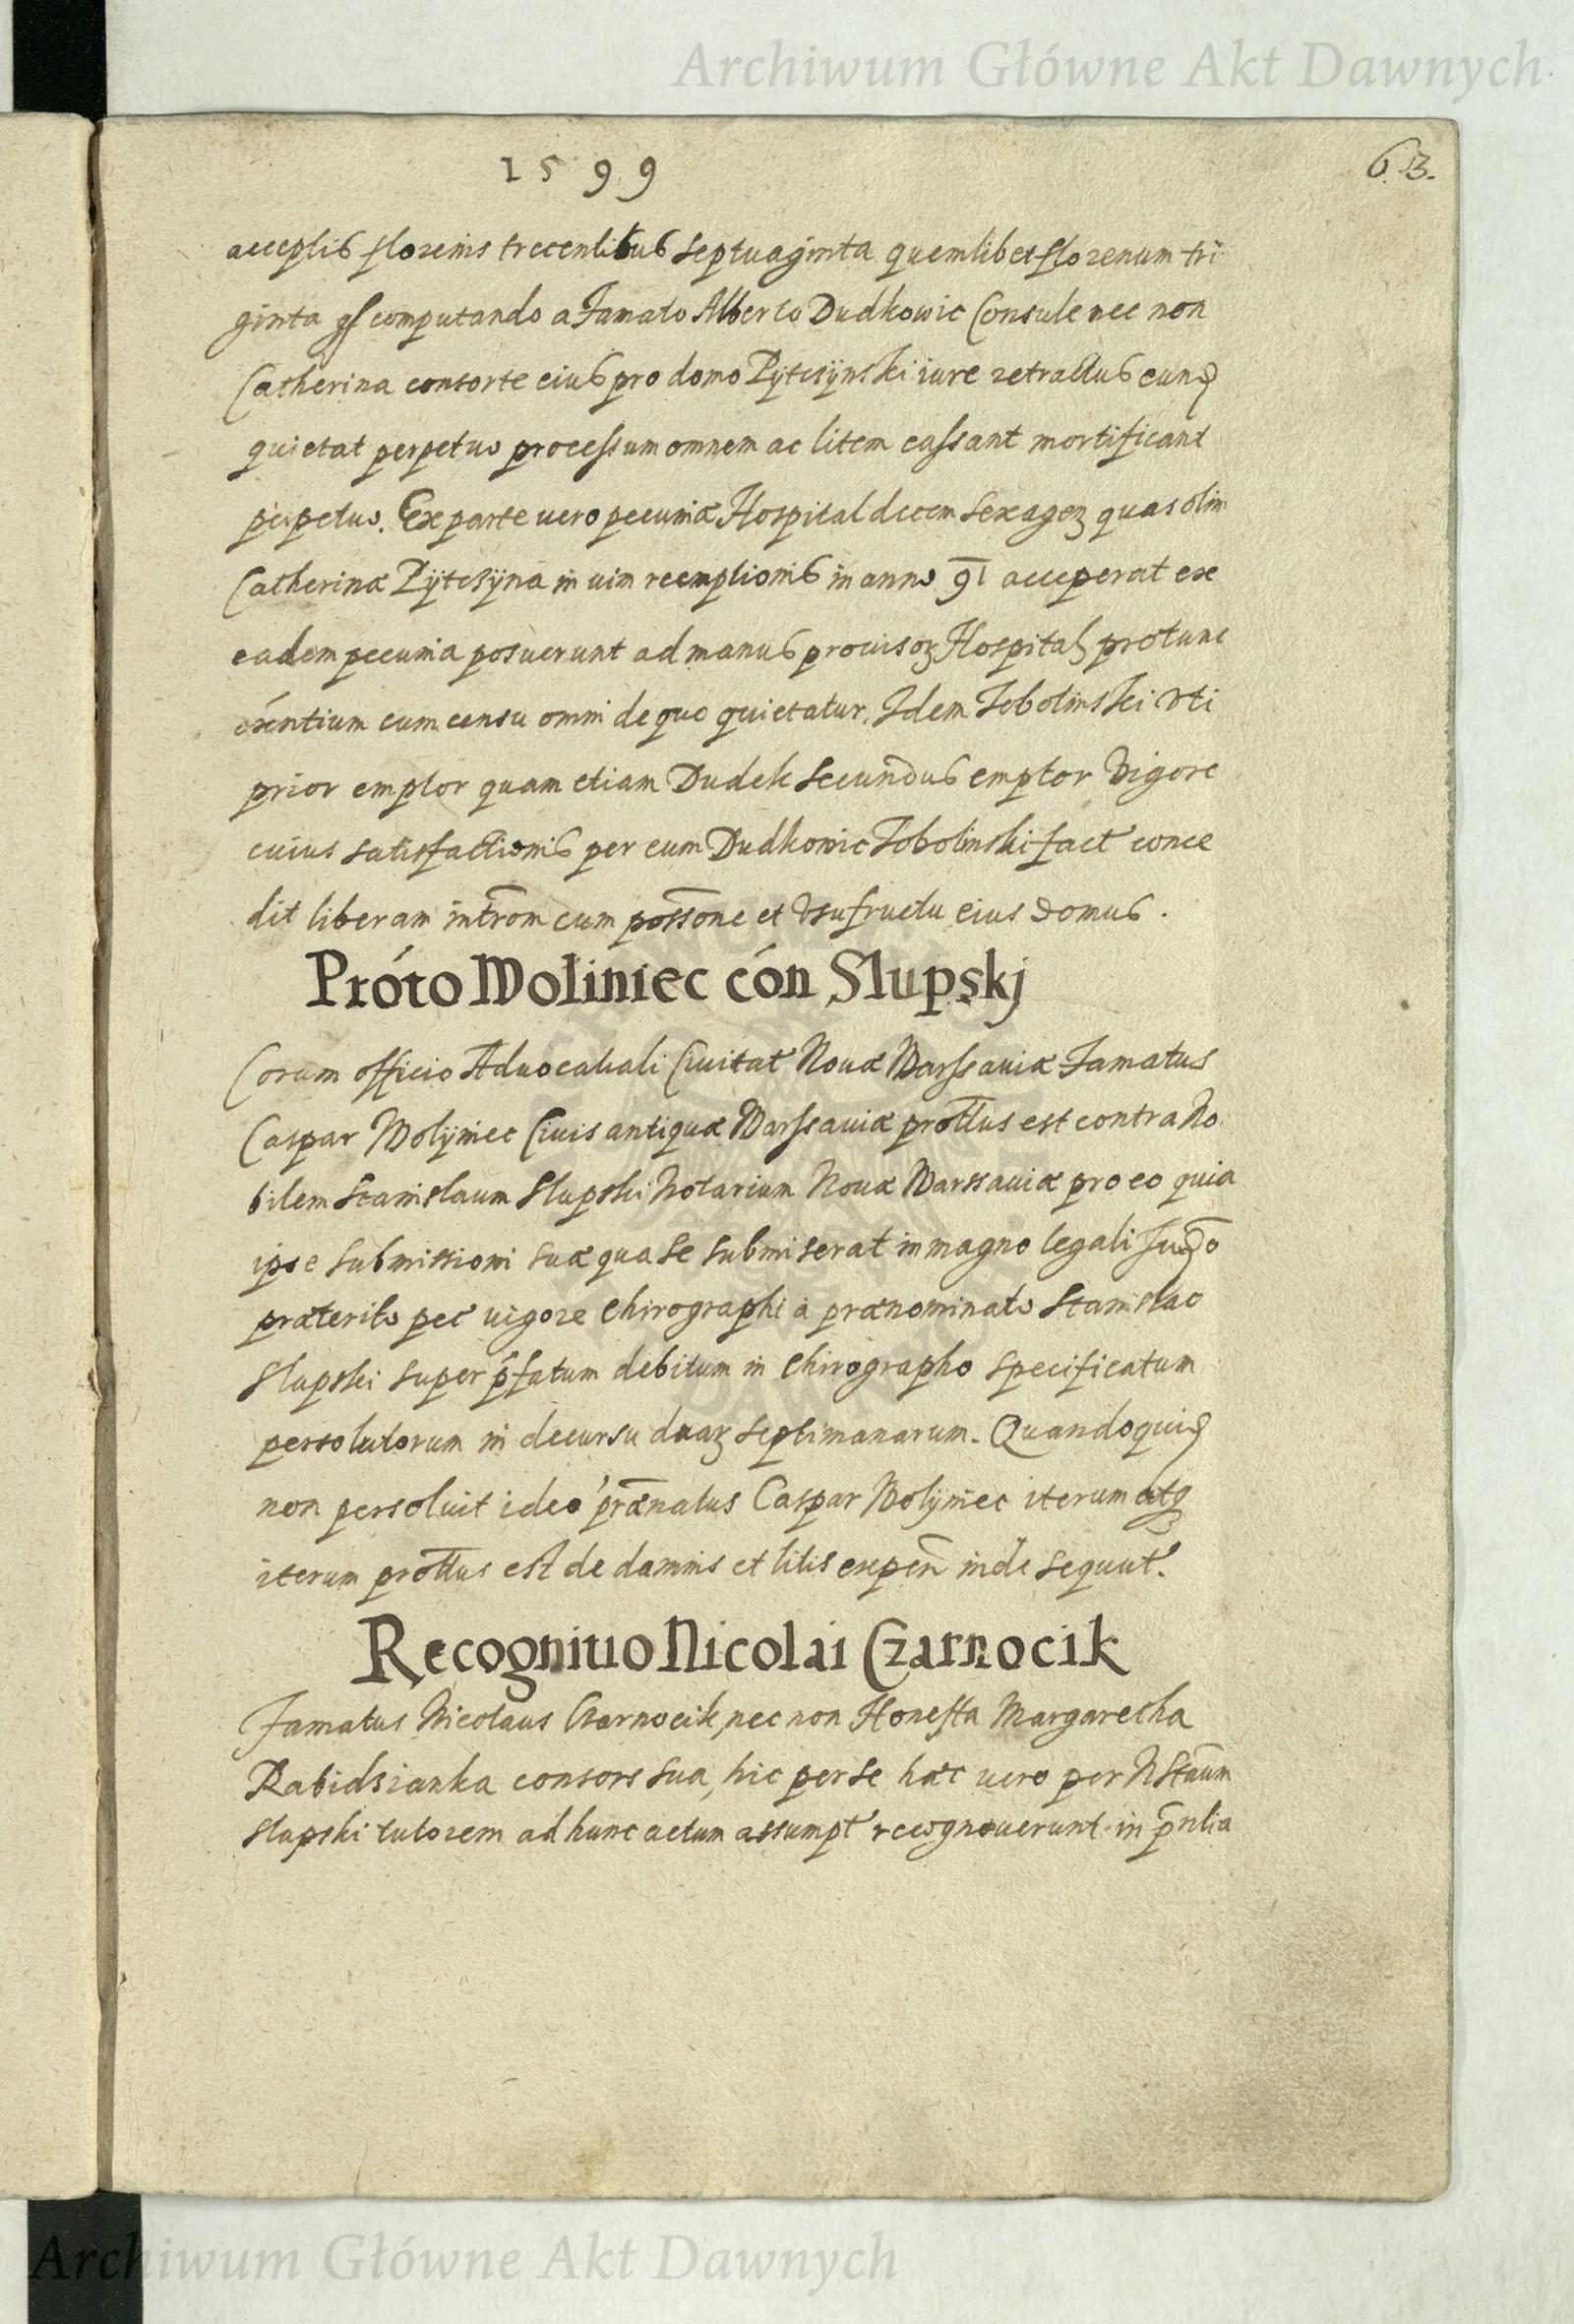 Archiwum Główne Akt Dawnych
1599
63.
acceptis florenis trecentibus septuaginta quemlibet florenum tri
ginta gs computando a Famato Alberto Dudkowic Consule nec non
Catherina consorte eius pro domo Pÿtczÿnski iure retractus eund
quietat perpetuo processum omnem ac litem cassant mortificant
perpetuo. Ex parte vero pecuniæ Hospital decem sexagen quas olim
Catherina Pÿtczÿna in uim reemptionis in anno 91 acceperat ex
eadem pecunia posuerunt ad manus prouisor Hospital protunc
exentium cum censu omni de quo quietatur. Idem Zobolinski vti
prior emptor quam etiam Dudek secundus emptor vigore
cuius satisfactionis per eum Dudkowic Zobolinski fact conce
dit liberam introm cum possone et vsufructu eius domus.
Proto Woliniec con Slupskj
Coram officio Aduocatiali Ciuitat Nouæ Warssauiæ Famatus
Caspar Wolÿniec Ciuis antiquæ Warssauiæ prottus est contra No
bilem Stanislaum Slupski Notarium Nouæ Warssauiæ pro eo quia
ipse submissioni suæ qua se submiserat in magno legali Judo
præterito pec uigore chirographi a prænominato Stanislao
Slupski super pfatum debitum in chirographo specificatum
persolutorum in decursu duar septimanarum. Quandoquid
non persoluit ideo prænatus Caspar Wolÿniec iterum atq
iterum prottus est de damnis et litis expen inde sequut.
Recognitio Nicolai Czarnocik
Famatus Nicolaus Czarnocik, nec non Honesta Margaretha
Rabidzianka consors sua, hic per se hæc uero per N Staum
Slupski tutorem ad hunc actum assumpt recognouerunt in pntia
Archiwum Główne Akt Dawnych